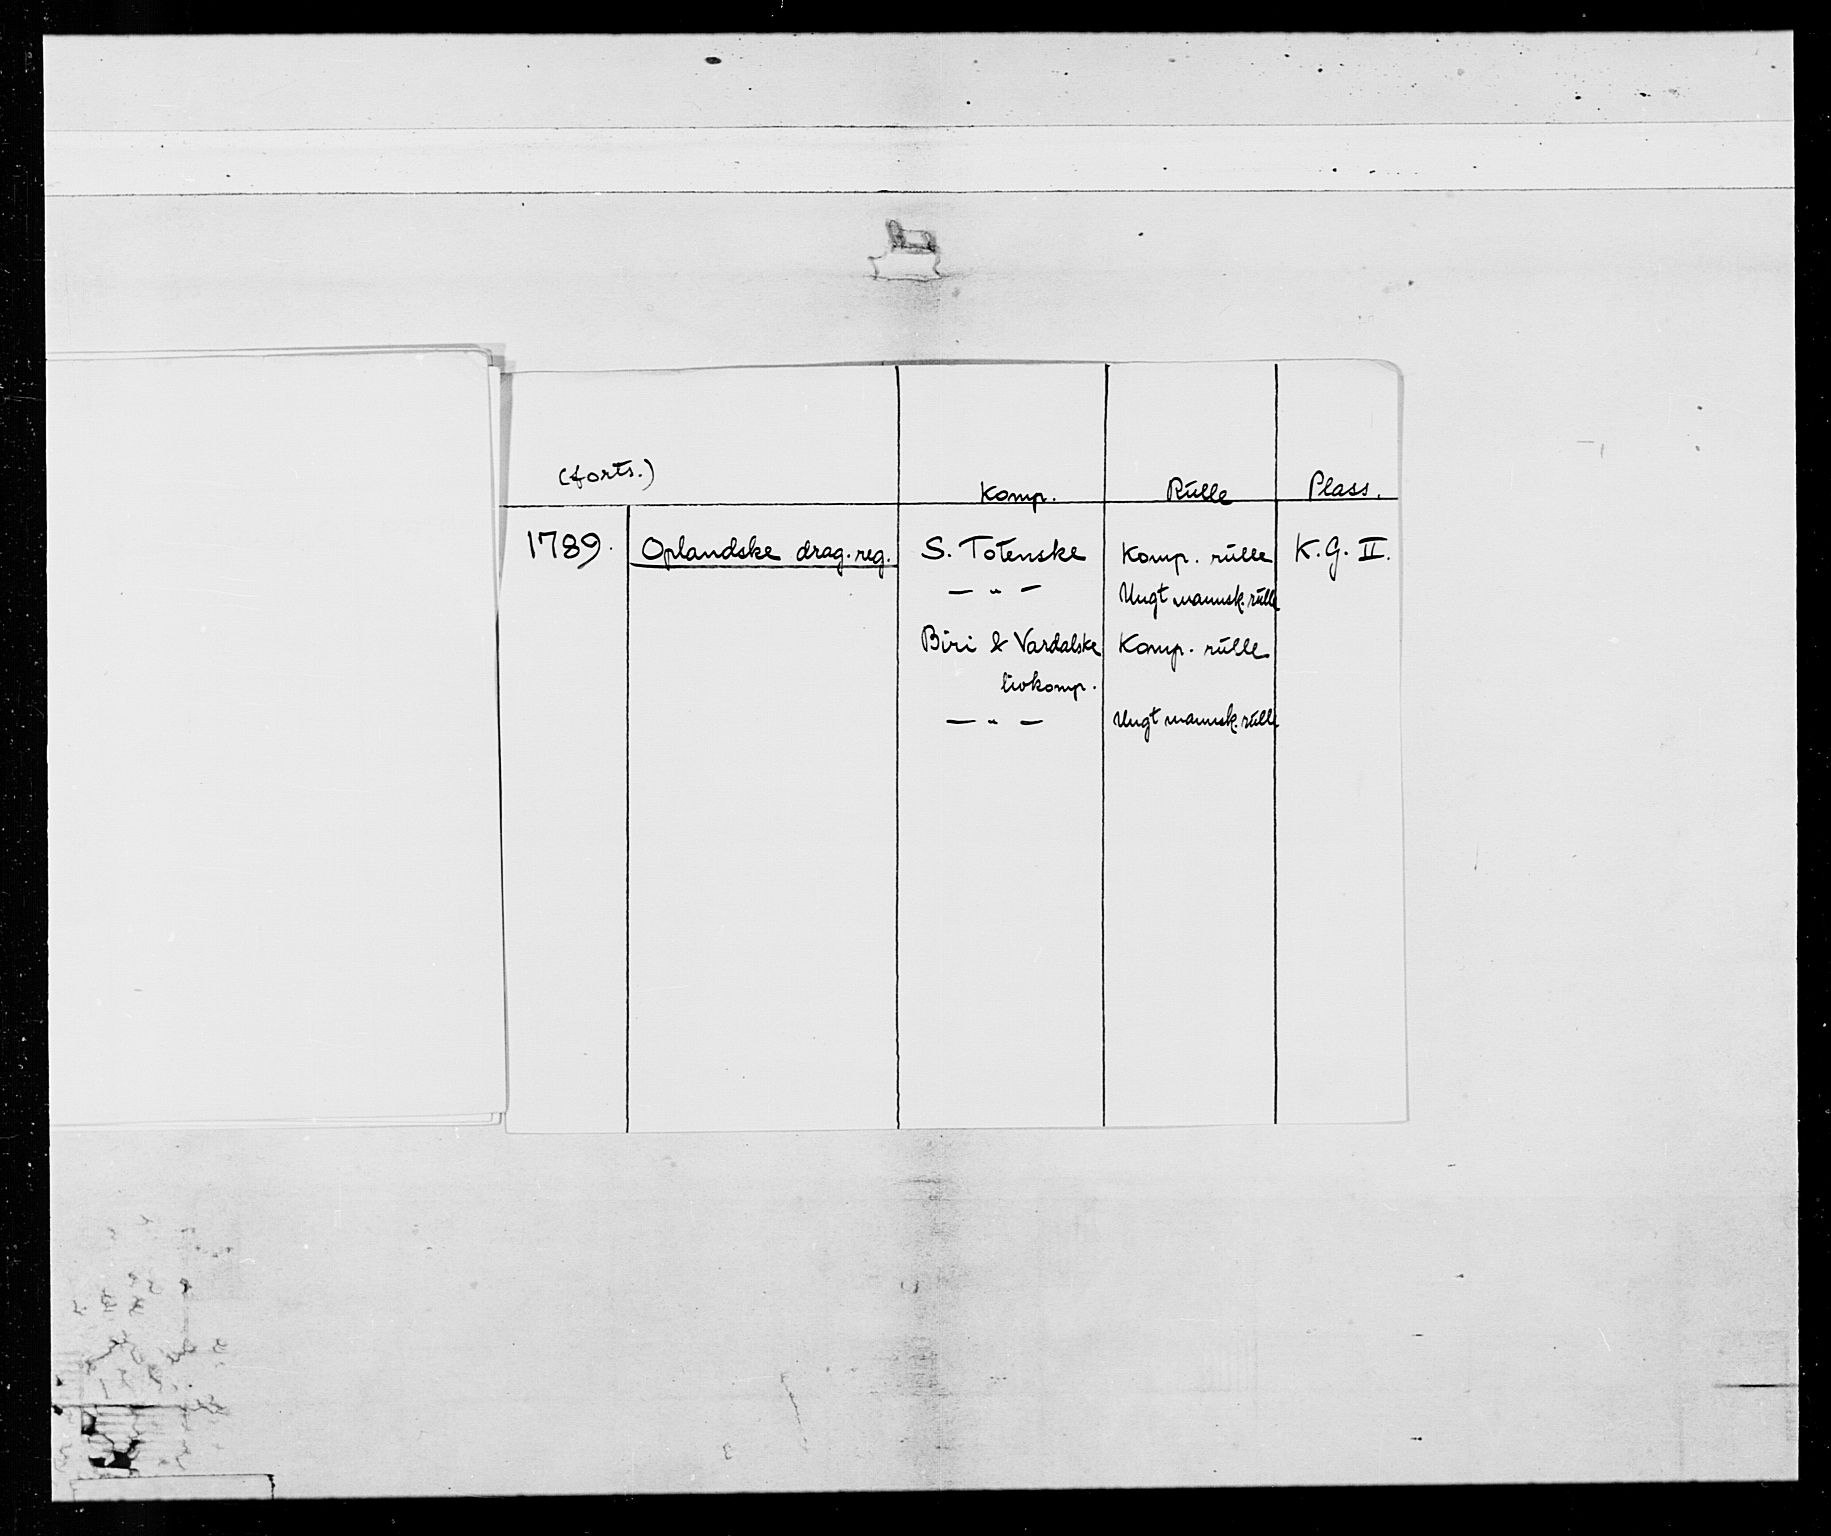 (forts.)
Komp. Rulle Plass.
1789. Oplandske drag. reg. S. Totenske Komp. rulle K. G. II.
— " — Ungt mannsk. rulle
Biri & Vardalske Komp. rulle
livkomp.
— " — Ungt mannsk. rulle